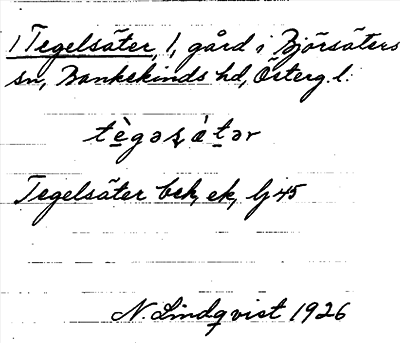 1 Tegelsäter, 1, gård i Björsäters
sn, Bankekinds hd, Österg. l.
tègəsátər
Tegelsäter bek, ek, lj 45
N. Lindqvist 1926